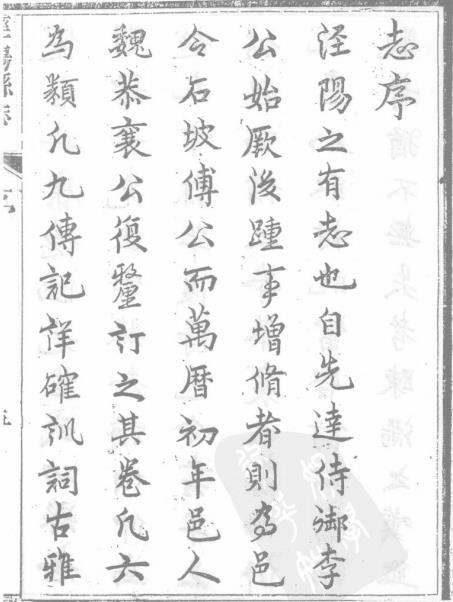 志序
涇陽之有志也自先達侍御李
公始厥後踵事增脩者則為邑
令石坡傅公而萬曆初年邑人
魏恭襄公復釐訂之其卷凡六
為類凡九傳記詳確訓詞古雅